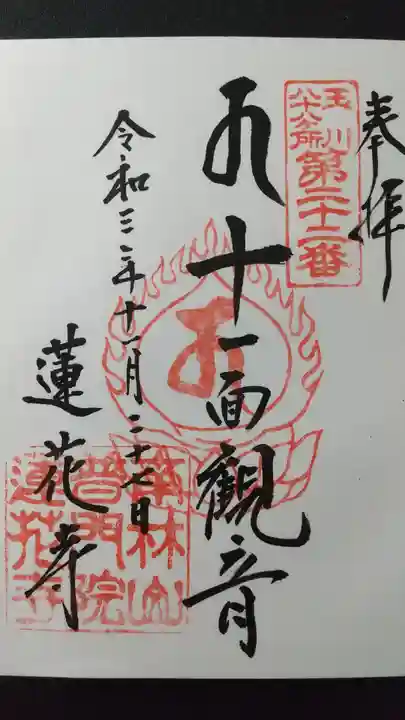 奉拝
玉川
八十八ヶ所
第二十二番
十一面觀音
令和三年十一月二十七日
蓮花寺
華林山
普門院
蓮花寺